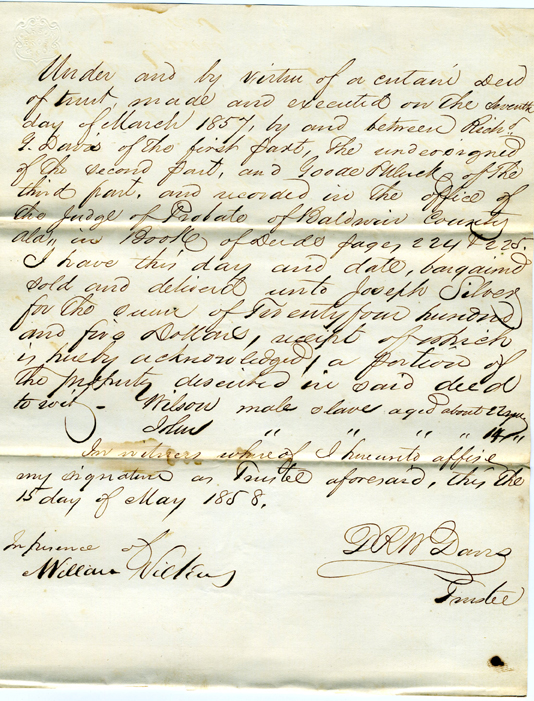 Under and by virtue of a certain Deed
of trust, made and executed on the seventh
day of March 1857, by and between Richd
G. Davis of the first part, the undersigned
of the second part, and Goode of the
third part, and recorded in the office of
the Judge of Probate of Baldwin County
Ala,, in Book of Deeds pages 224 & 225.
I have this day and date, bargained
sold and deliverd unto Joseph Silver
for the sum of Twenty four hundred
and five Dollars, receipt of which
is hereby acknowledged, a portion of
the property described in said deed
to wit - Wilson male slave aged about 22 yrs
John " " " " "
In witness whereof I hereunto affix
my signature as Trustee aforesaid, this the
15 day of May 1858.
In presence of
William
D R W Davis
Trustee